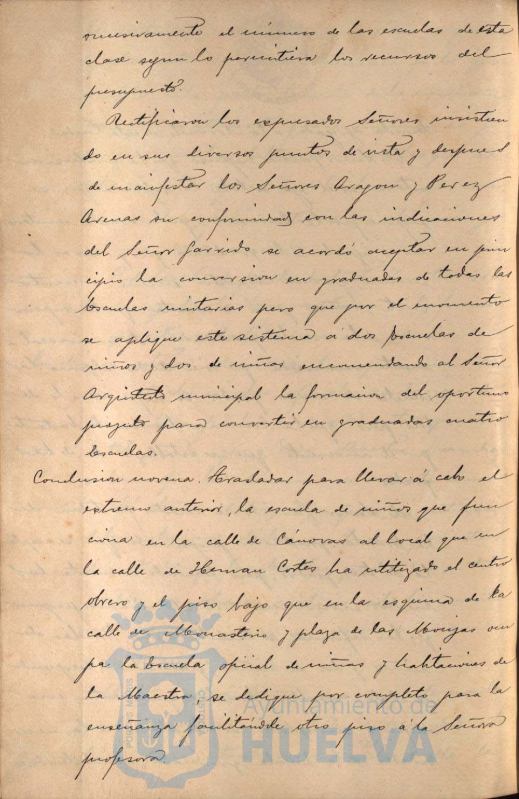 sucesivamente el número de las escuelas de esta
clase segun lo permitiera los recursos del
presupuesto.
Rectificaron los expresados Señores insistien
do en sus diversos puntos de vista y despues
de manifestar los Señores Aragon y Perez
Arenas su conformidad con las indicaciones
del Señor Garrido se acordó aceptar en prin
cipio la conversion en graduadas de todas las
Escuelas unitarias pero que por el momento
se aplique este sistema á dos Escuelas de
niños y dos de niñas encomendando al Señor
Arquitecto municipal la formacion del oportuno
proyecto para convertir en graduadas cuatro
Escuelas.
Conclusion novena. Trasladar para llevar á cabo el
extremo anterior, la escuela de niños que fun
ciona en la calle de Cánovas al local que en
la calle de Hernan Cortes ha utilizado el centro
obrero y el piso bajo que en la esquina de la
calle de Monasterio y plaza de las Monjas ocu
pa la Escuela oficial de niñas y habitaciones de
la Maestra se dedique por completo para la
enseñanza facilitándole otro piso á la Señora
profesora
Ayuntamiento de
HUELVA